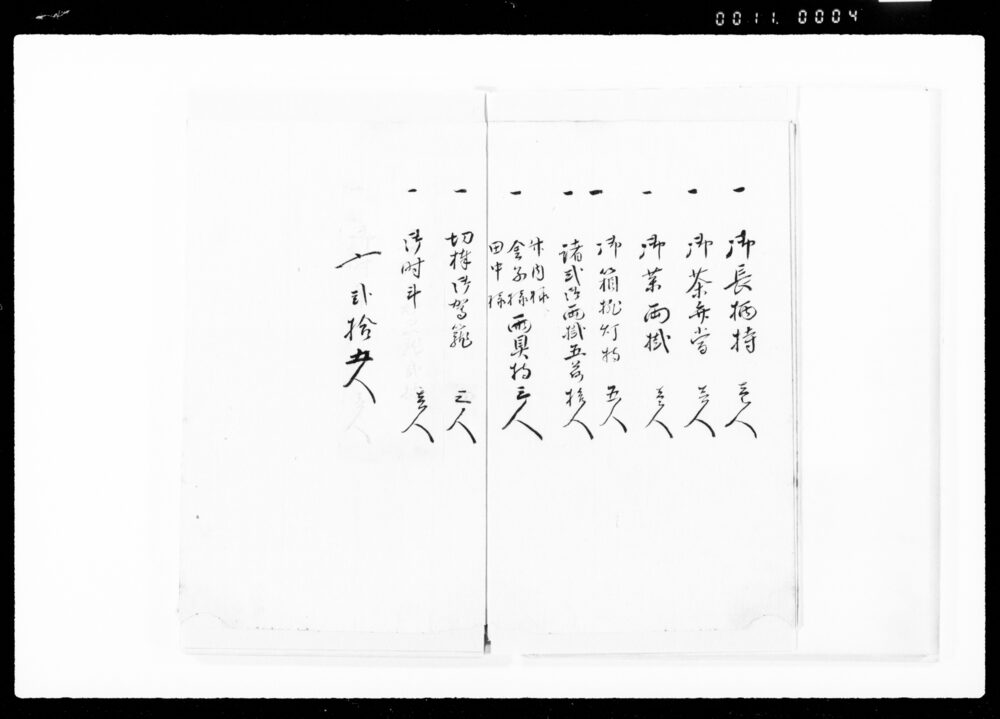 0011. 0004
一 御長柄持 壱人
一 御茶弁当 壱人
一 御薬両掛 壱人
一 御箱挑灯持 五人
一 諸式御両掛五荷 拾人
一 竹内様 金子様 田中様 雨具持 三人
一 切棒御駕籠 三人
一 御時斗 壱人
〆 弐拾五人